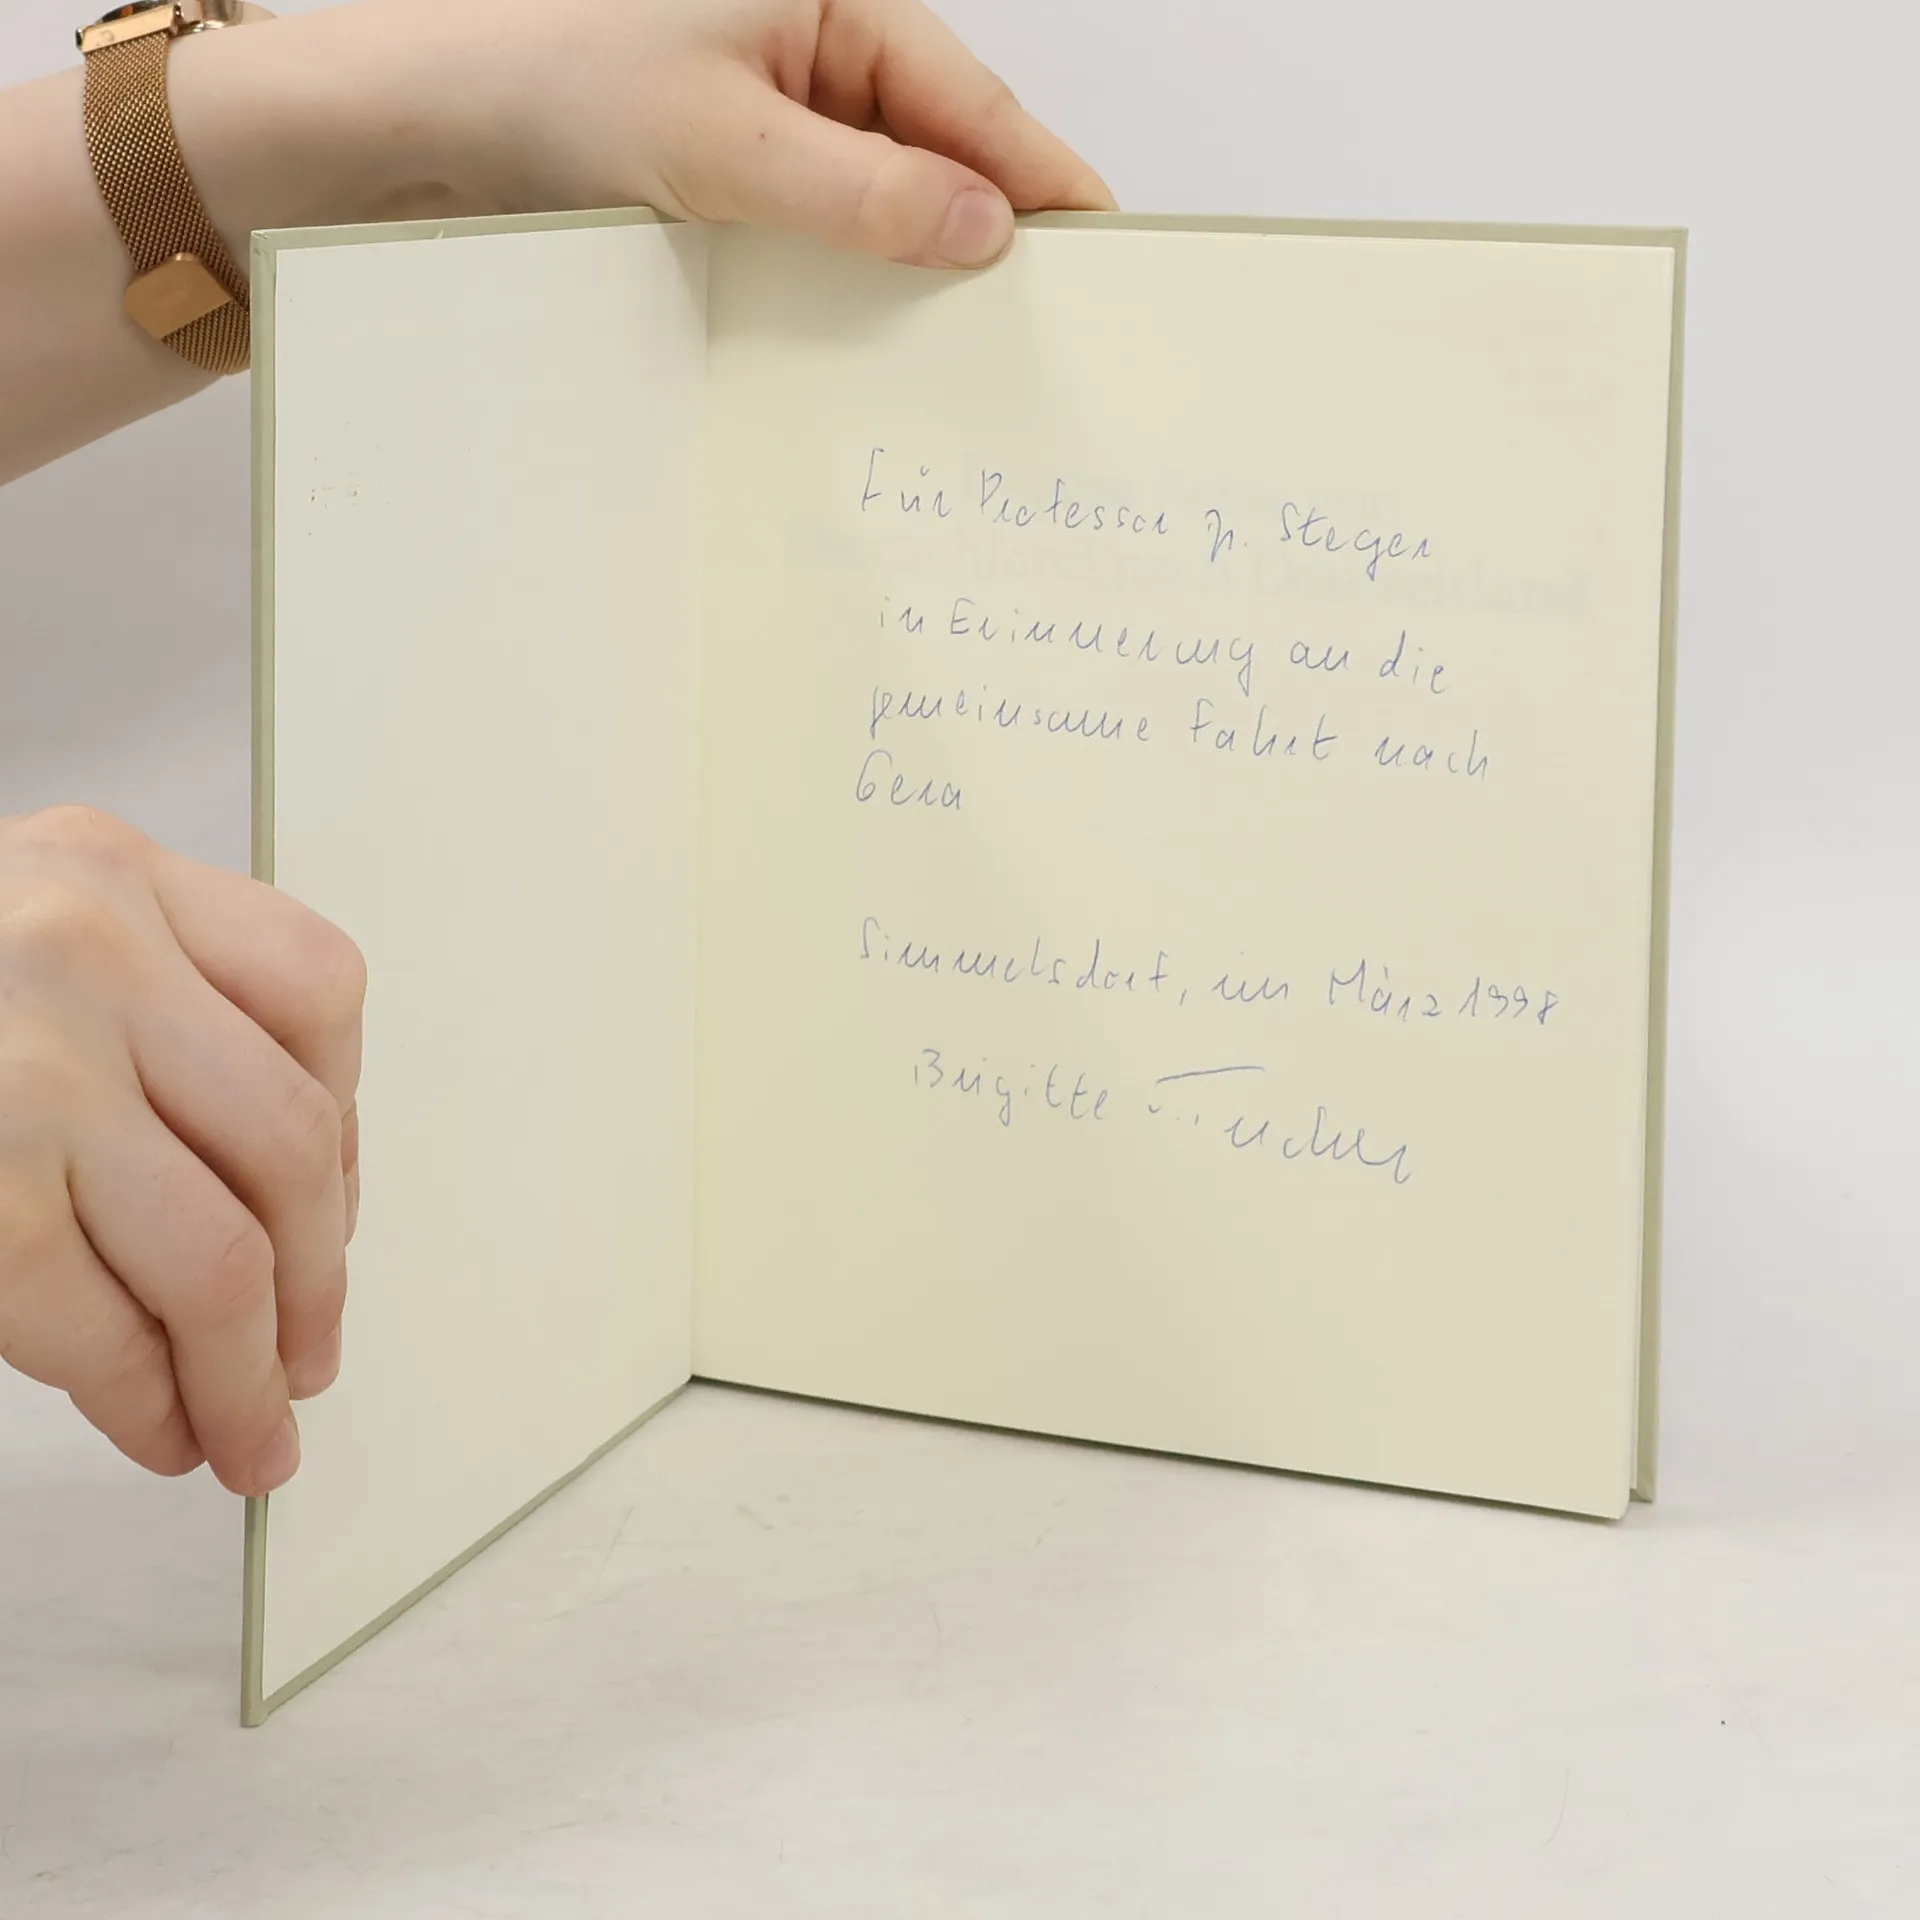 Für Professor H. Steger
in Erinnerung an die
gemeinsame Fahrt nach
Gera
Simmelsdorf, im März 1998
Brigitte